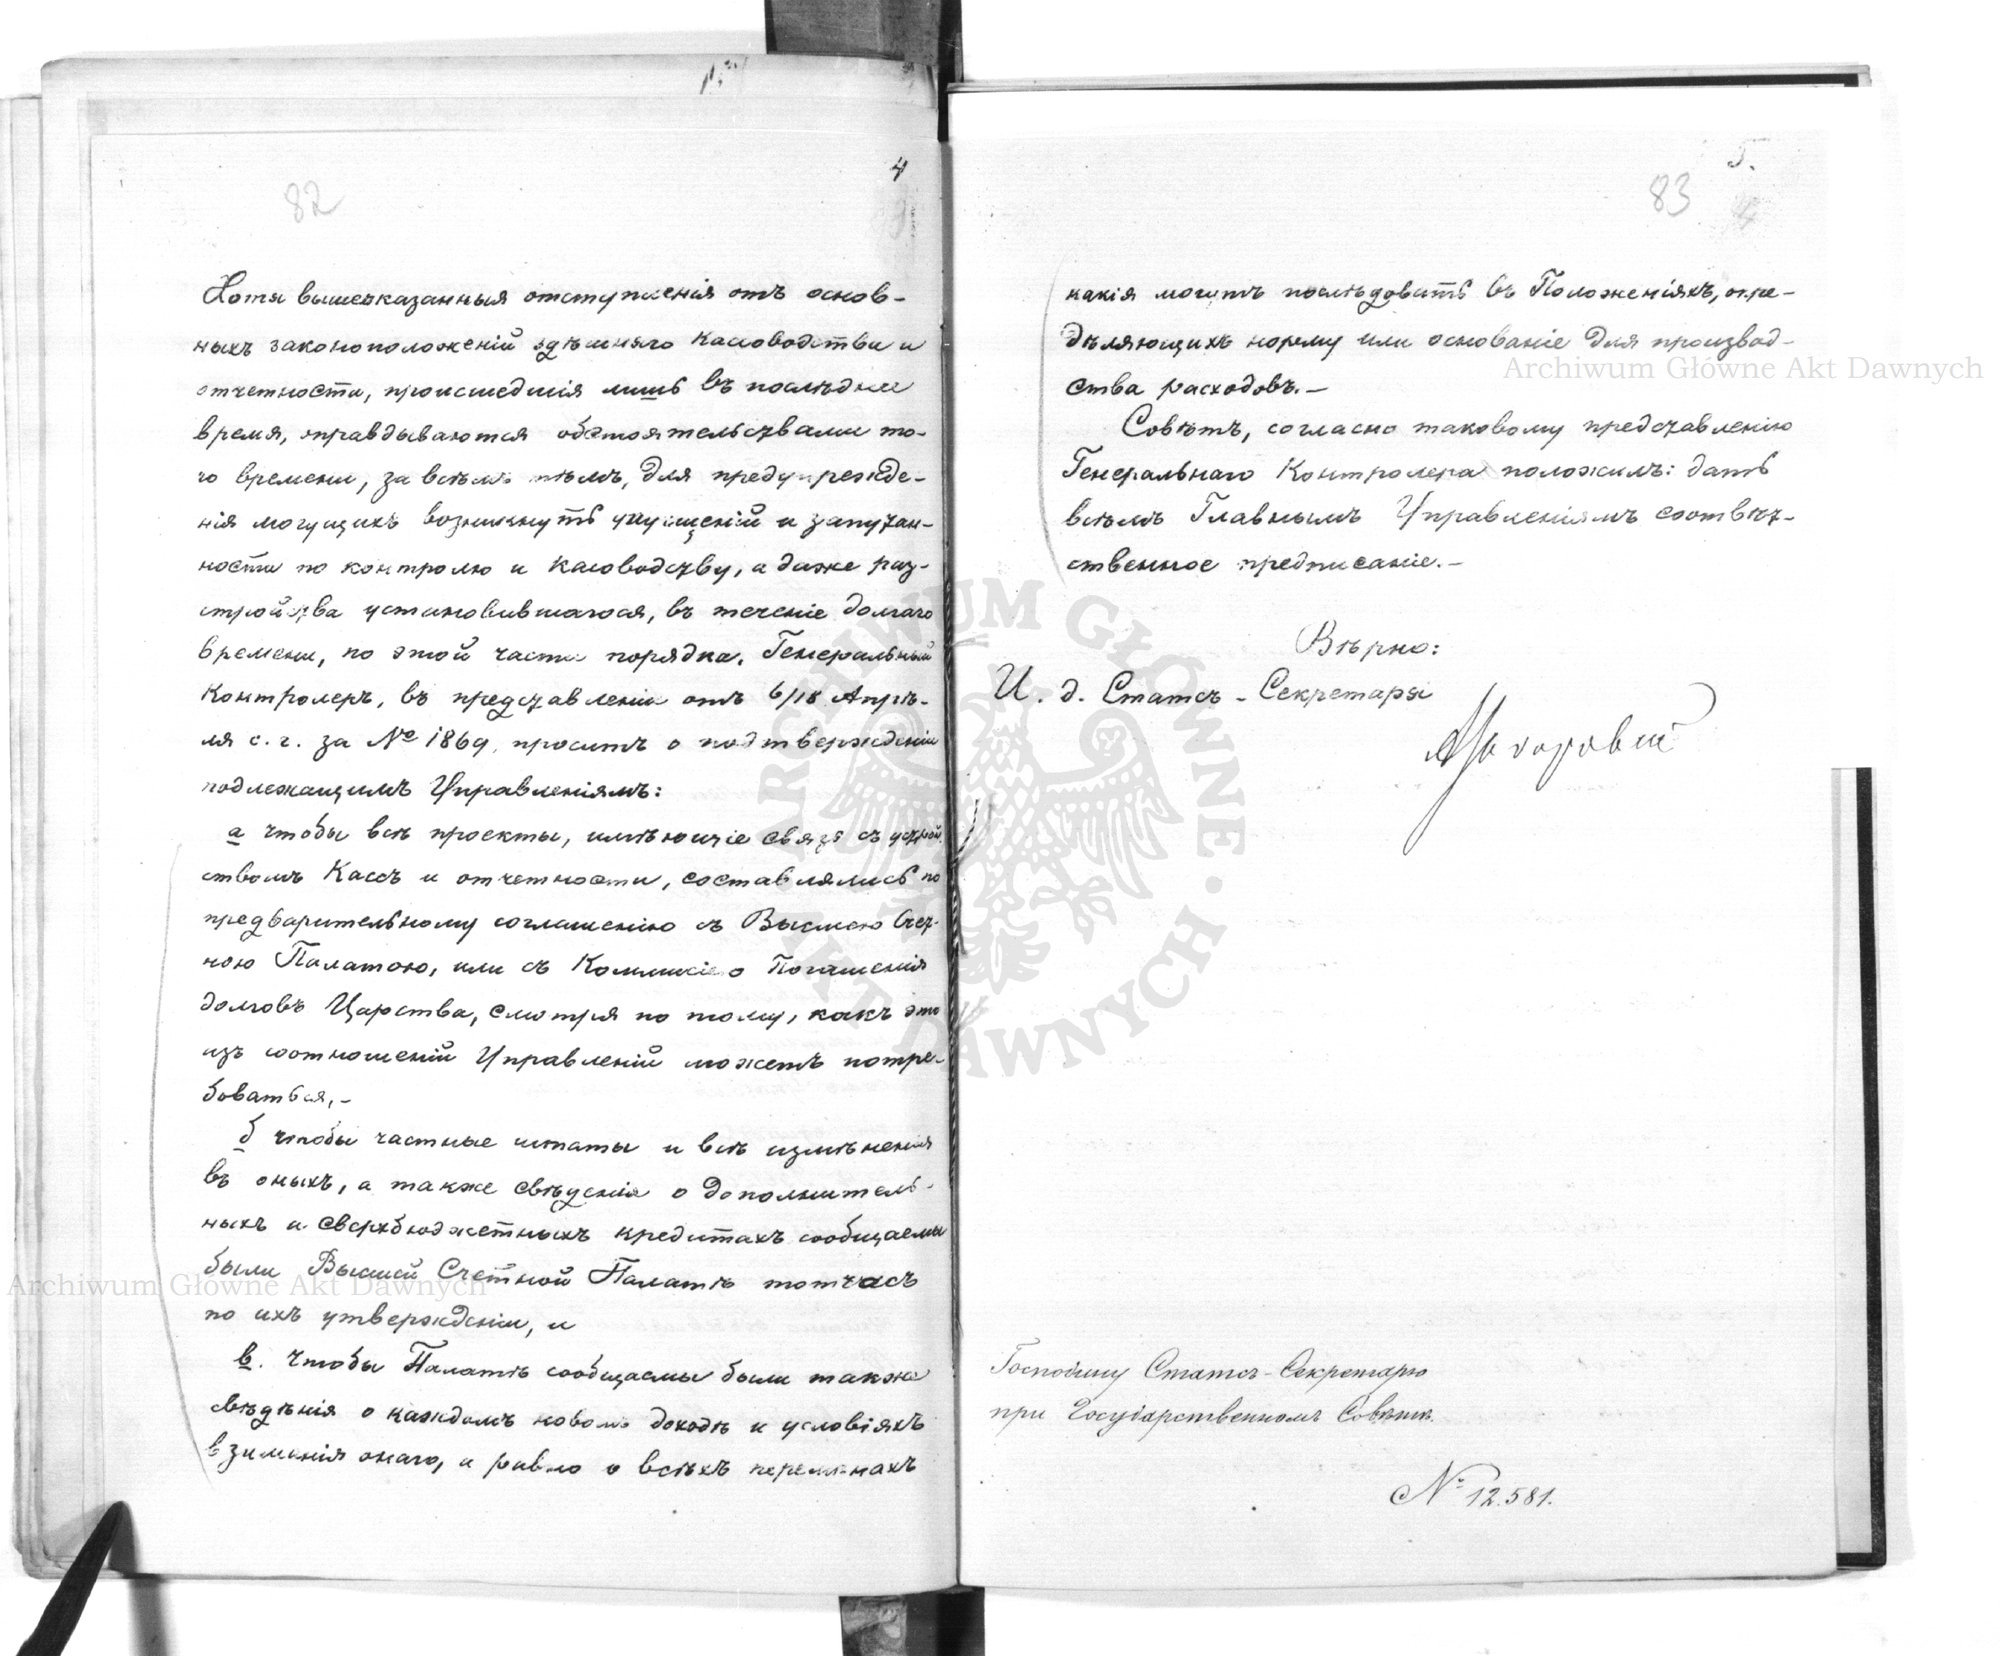 4
82
Хотя вышеуказанныя отступленія отъ основ-
ныхъ законоположеній здѣшняго кассоводства и
отчетности, происшедшія лишь въ послѣднее
время, оправдываются обстоятельствами то-
го времени, за всѣмъ тѣмъ, для предупрежде-
нія могущихъ возникнуть упущеній и запутан-
ности по контролю и кассоводству, а даже раз-
стройства установившагося, въ теченіе долгаго
времени, по этой части порядка, Генеральный
Контролеръ, въ представленіи отъ 6/18 Апрѣ-
ля с. г. за № 1869, проситъ о подтвержденіи
подлежащимъ Управленіямъ:
а чтобы всѣ проекты, имѣющіе связь съ устрой-
ствомъ Кассъ и отчетности, составлялись по
предварительному соглашенію съ Высшею Счет-
ною Палатою, или съ Коммисіею Погашенія
долговъ Царства, смотря по тому, какъ это
изъ соотношеній Управленій можетъ потре-
боваться,-
б чтобы частные штаты и всѣ измѣненія
въ оныхъ, а также свѣденія о дополнитель-
ныхъ и сверхбюджетныхъ кредитахъ сообщаемы
были Высшей Счетной Палатѣ тотчасъ
по ихъ утвержденіи, и
в. Чтобы Палатѣ сообщаемы были также
свѣдѣнія о каждомъ новомъ доходѣ и условіяхъ
взиманія онаго, и равно о всѣхъ перемѣнахъ
5.
83
какія могутъ послѣдовать въ Положеніяхъ, опре-
дѣляющихъ норму или основаніе для производ-
ства расходовъ.-
Совѣтъ, согласно таковому представленію
Генеральнаго Контролера положилъ: дать
всѣмъ Главнымъ Управленіямъ соотвѣт-
ственное предписаніе.-
Вѣрно:
И. д. Статсъ-Секретаря
Господину Статсъ-Секретарю
при Государственномъ Совѣтѣ.
№ 12.581.
Archiwum Główne Akt Dawnych
Archiwum Główne Akt Dawnych
ARCHIWUM GŁÓWNE AKT DAWNYCH